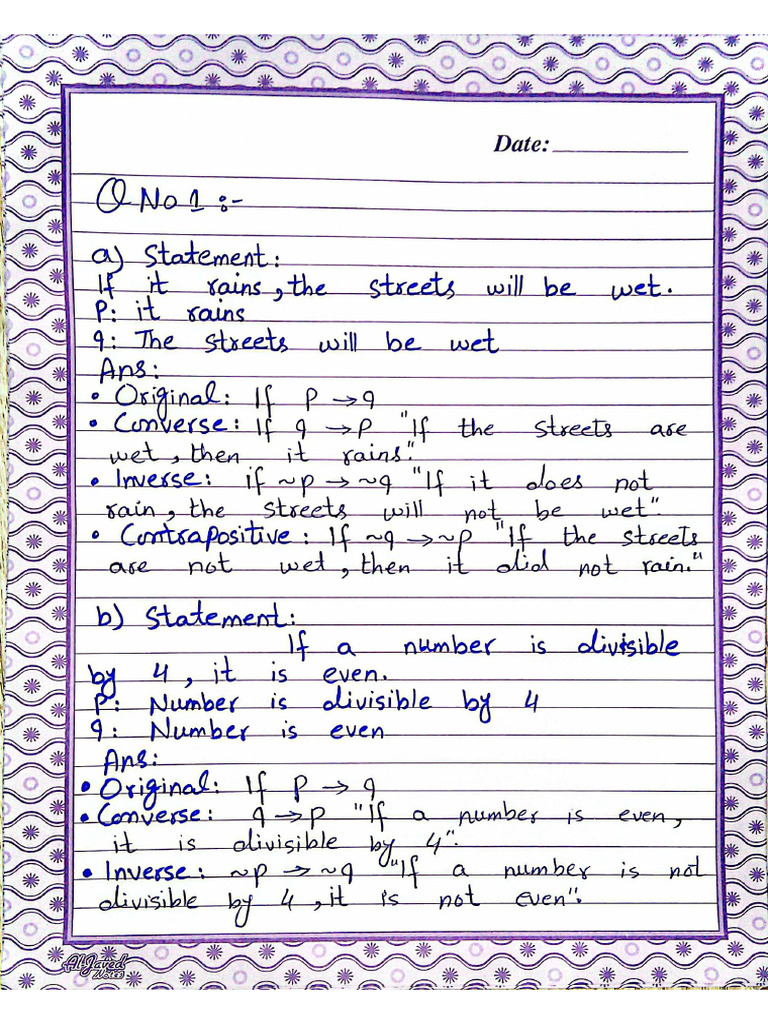 Date:
Q No 1 :-
a) Statement:
If it rains, the streets will be wet.
P: it rains
q: The streets will be wet
Ans:
• Original: If P → q
• Converse: If q → P "If the streets are
wet, then it rains."
• Inverse: if ~p → ~q "If it does not
rain, the streets will not be wet".
• Contrapositive: If ~q → ~p "If the streets
are not wet, then it did not rain."
b) Statement:
If a number is divisible
by 4, it is even.
P: Number is divisible by 4
q: Number is even
Ans:
• Original: If P → q
• Converse: q → P "If a number is even,
it is divisible by 4".
• Inverse: ~p → ~q "If a number is not
divisible by 4, it is not even".
Al Javed